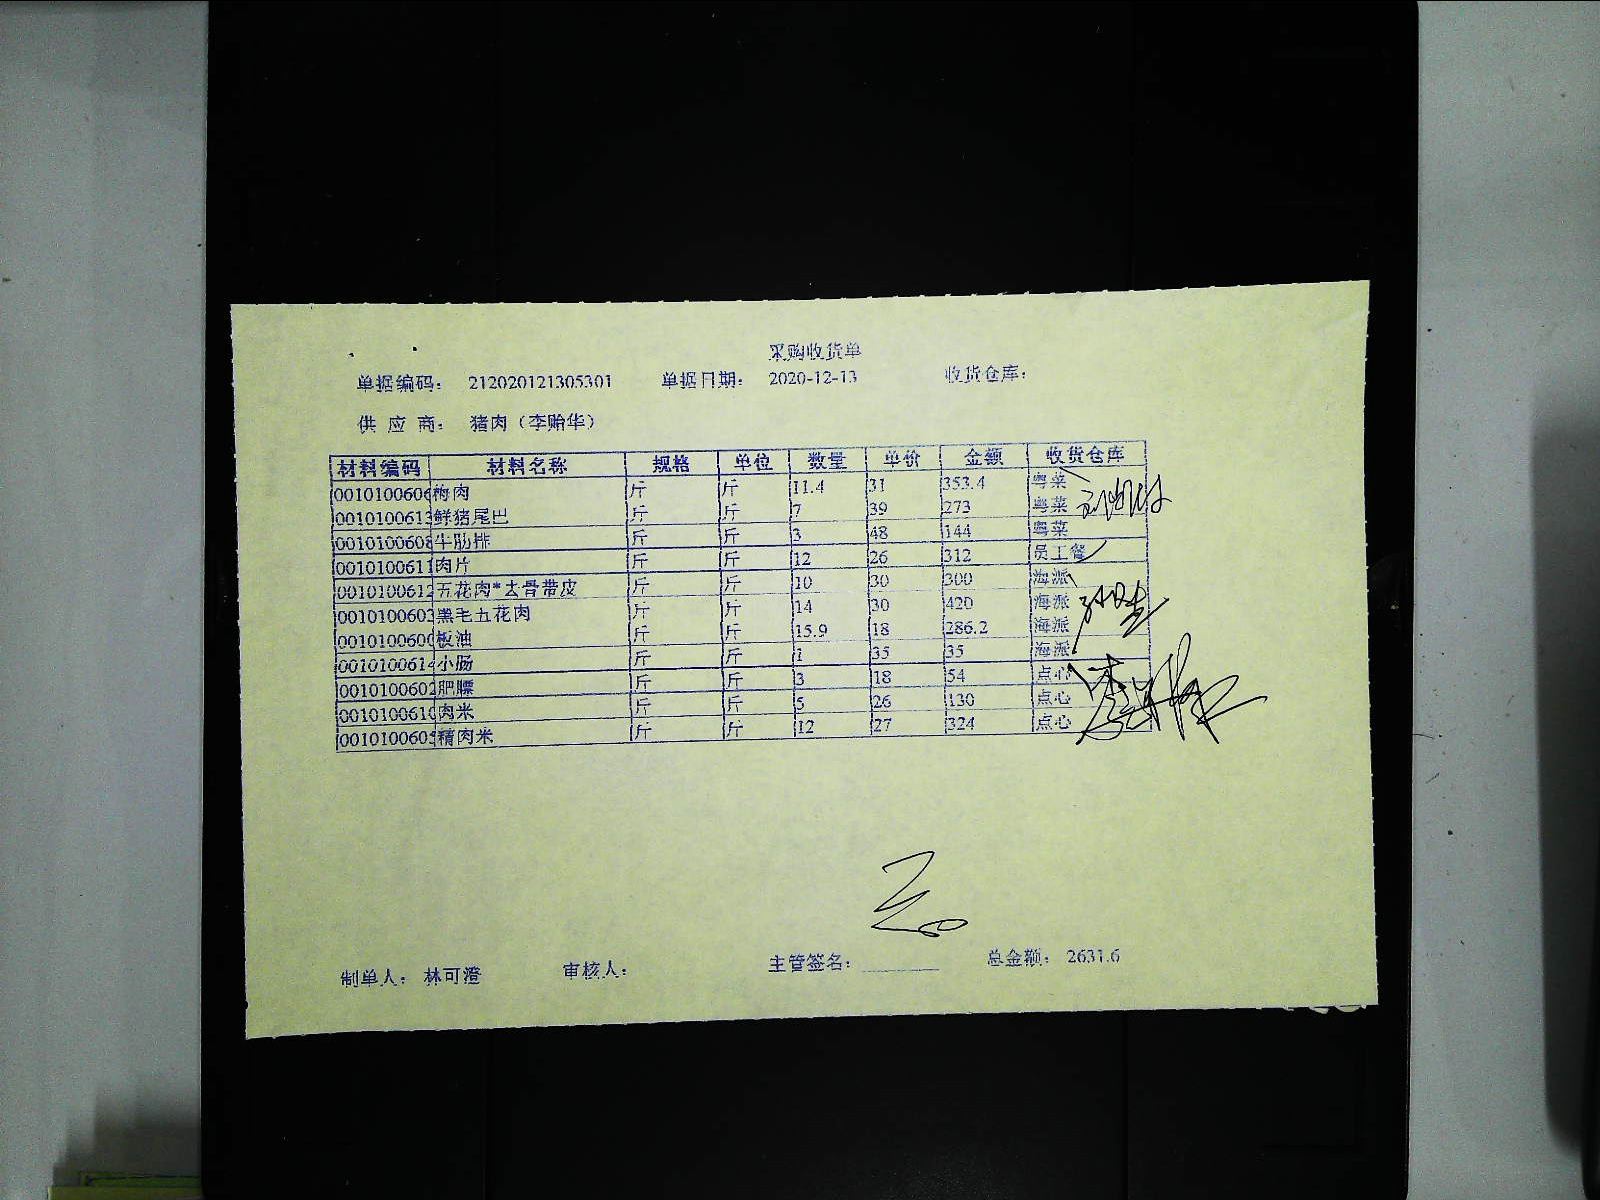 采购收货单
单据编码： 212020121305301 单据日期： 2020-12-13 收货仓库：
供 应 商： 猪肉（李贻华）
材料编码 材料名称 规格 单位 数量 单价 金额 收货仓库
0010100606 梅肉 斤 斤 11.4 31 353.4 粤菜
0010100613 鲜猪尾巴 斤 斤 7 39 273 粤菜
0010100608 牛肋排 斤 斤 3 48 144 粤菜
0010100611 肉片 斤 斤 12 26 312 员工餐
0010100612 五花肉*去骨带皮 斤 斤 10 30 300 海派
0010100603 黑毛五花肉 斤 斤 14 30 420 海派
0010100600 板油 斤 斤 15.9 18 286.2 海派
0010100614 小肠 斤 斤 1 35 35 海派
0010100602 肥膘 斤 斤 3 18 54 点心
0010100610 肉米 斤 斤 5 26 130 点心
0010100605 精肉米 斤 斤 12 27 324 点心
制单人： 林可澄 审核人： 主管签名： 总金额： 2631.6